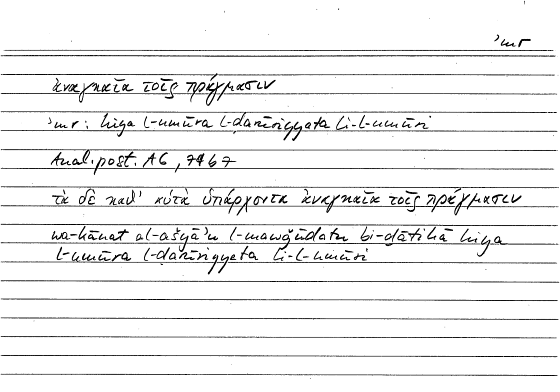 ʾmr
ἀναγκαῖα τοῖς πράγμασιν
ʾmr: hiya l-umūra l-ḍarūriyyata li-l-umūri
Anal. post. A6, 74b7
τὰ δὲ καθ' αὑτὰ ὑπάρχοντα ἀναγκαῖα τοῖς πράγμασιν
wa-kānat al-ašyāʾu l-mawǧūdatu bi-ḏātihā hiya
l-umūra l-ḍarūriyyata li-l-umūri